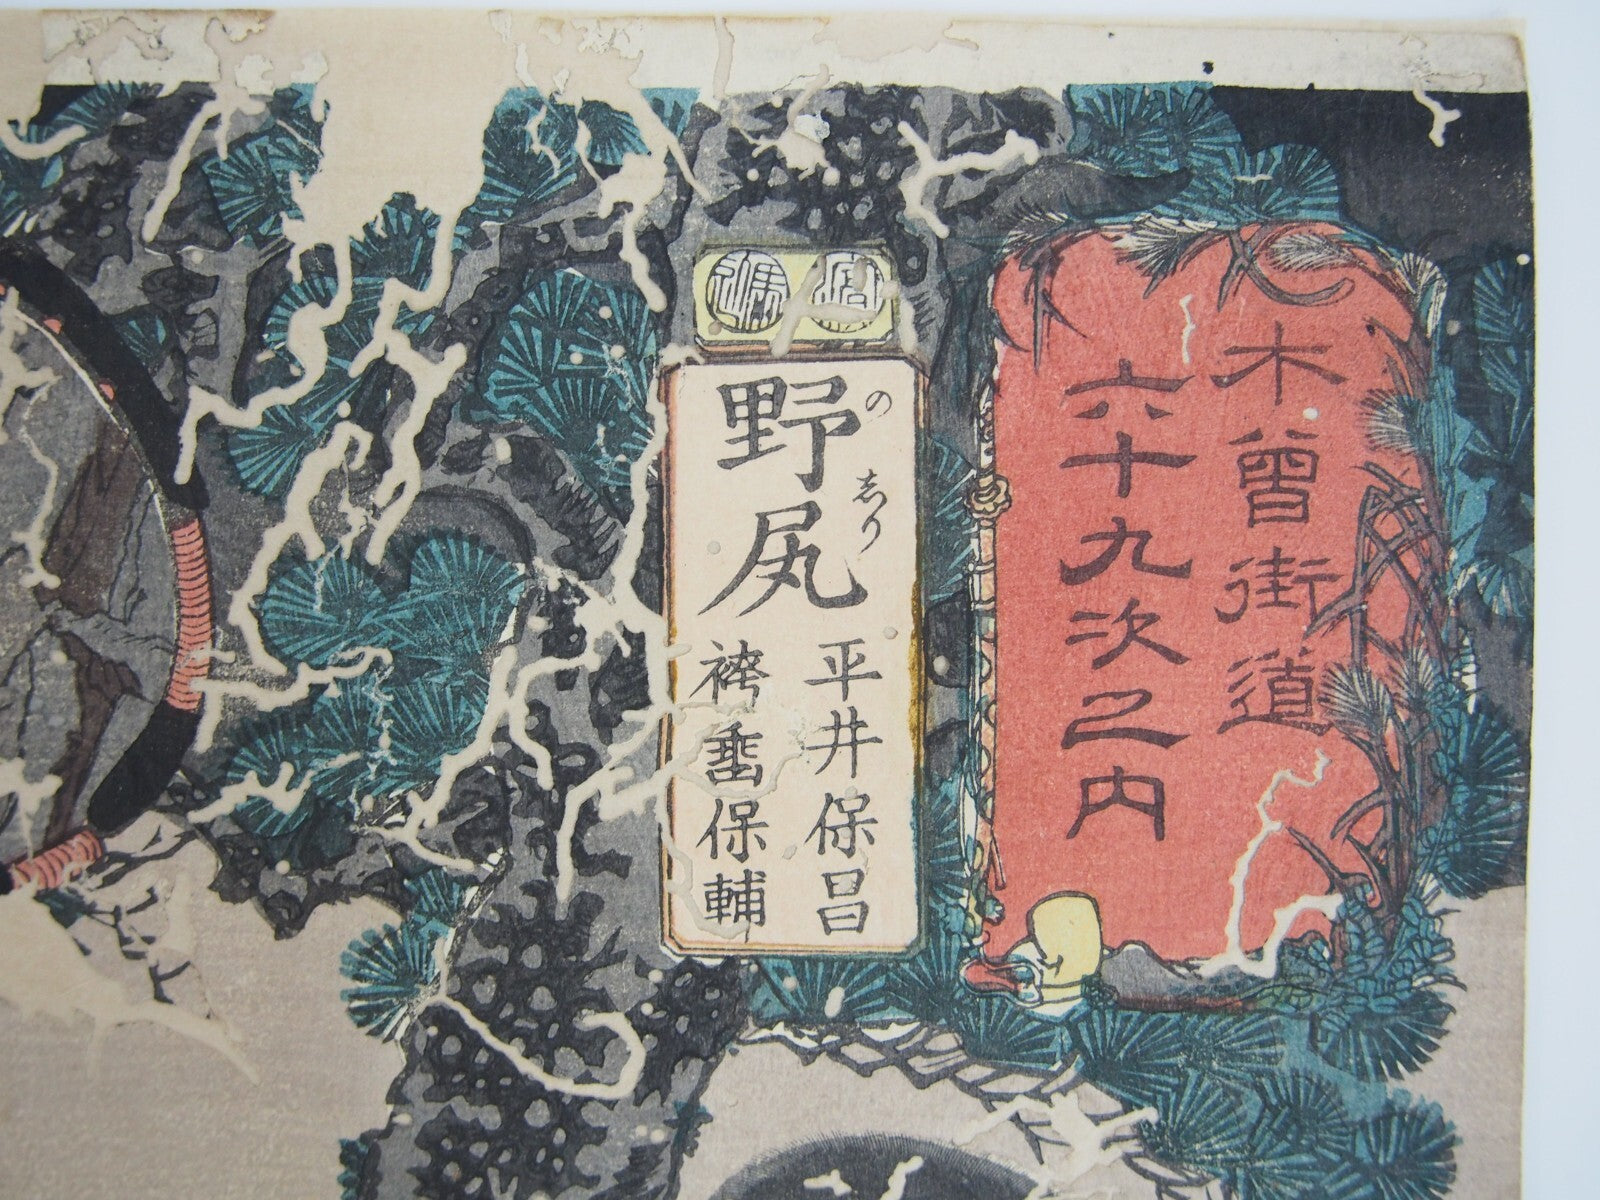 木曾街道
六十九次之内
野尻
のしり
平井保昌
袴垂保輔